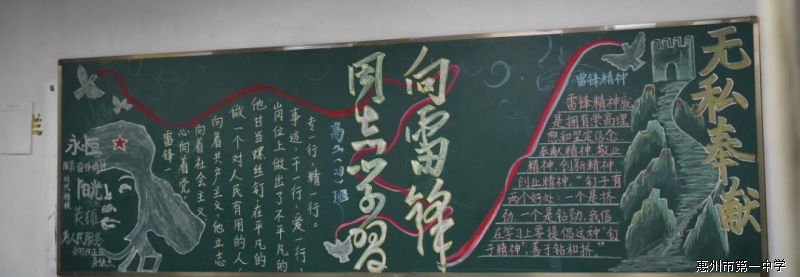 向雷锋
同志学习
无私奉献
永恒
阳光
英雄
为人民服务
雷锋一
心向着党，
向着社会主义，
向着共产主义，他立志
做一个对人民有用的人，
他甘当螺丝钉，在平凡的
岗位上做出了不平凡的
事迹，干一行，爱一行，
专一行，精一行。
雷锋精神
雷锋精神就
是拥有崇高理
想和坚定信念
奉献精神、敬业
精神、创新精神
创业精神。"钉子有
两个好处：一个是挤
劲，一个是钻劲，我们
在学习上要提倡这种"钉
子精神"，善于钻和挤。"
惠州市第一中学